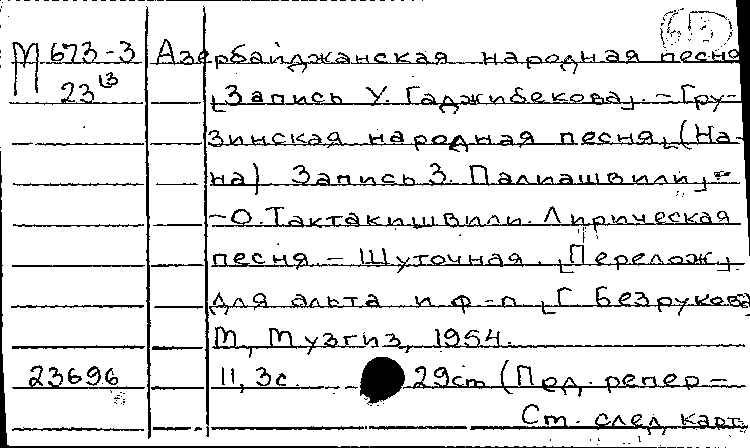 613
М 673-3 Азербайджанская народная песня
23 13 [Запись У. Гаджибекова]. - Гру-
зинская народная песня, (На-
на) [Запись З. Палиашвили]. -
- О. Тактакишвили. Лирическая
песня - Шуточная. [Перелож.]
для альта и ф-п [Г Безрукова
М, Музгиз, 1954.
23696 11, 3с. 29cm (Пед. репер-
См. след карт.